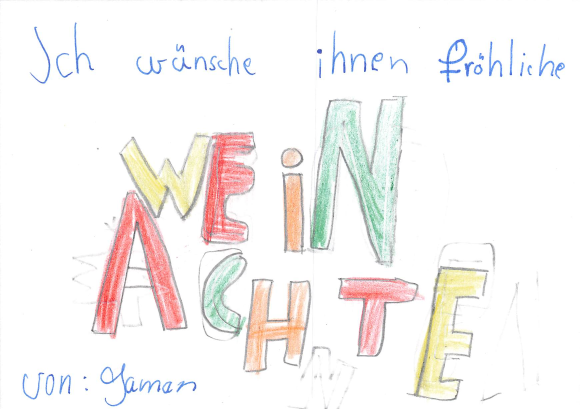 Ich wünsche ihnen fröhliche
WEiN
ACHTE
von: